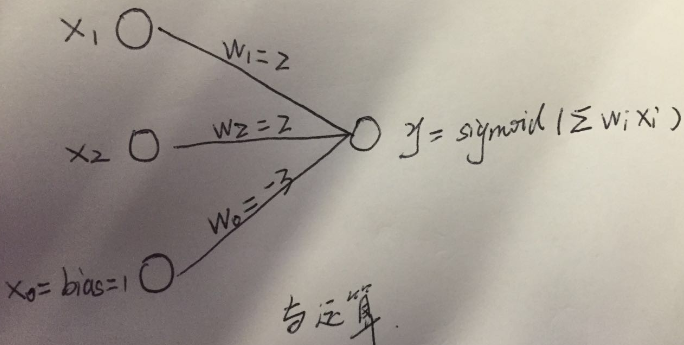 x₁
w₁=2
x₂
w₂=2
y=sigmoid(Σwᵢxᵢ)
w₀=-3
x₀=bias=1
与运算.